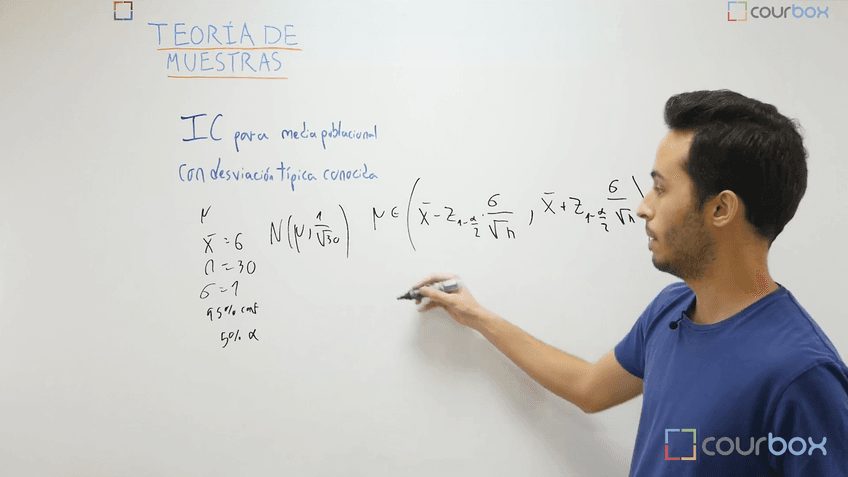 courbox
TEORÍA DE
MUESTRAS
IC para media poblacional
con desviación típica conocida
μ
x̄ = 6
n = 30
σ = 1
95% conf
5% α
N(μ, 1/√30)
μ ∈ (x̄ - Z₁₋α/₂ · σ/√n , x̄ + Z₁₋α/₂ σ/√n)
courbox